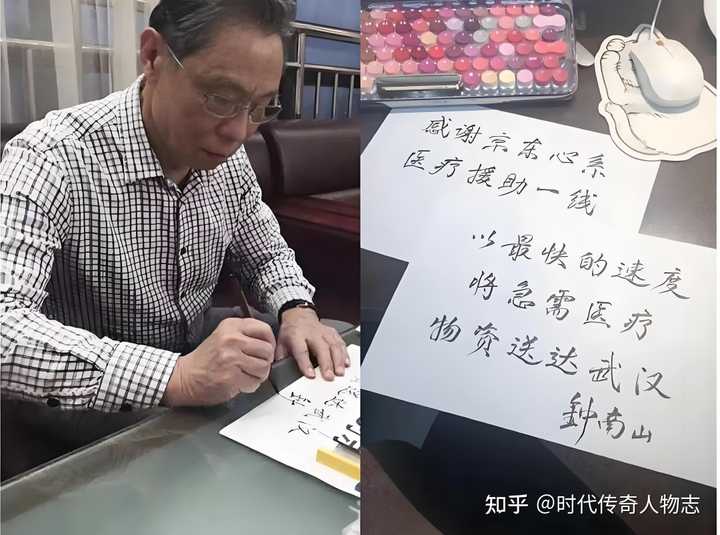 感谢京东心系
医疗援助一线
以最快的速度
将急需医疗
物资送达武汉
钟南山
知乎 @时代传奇人物志